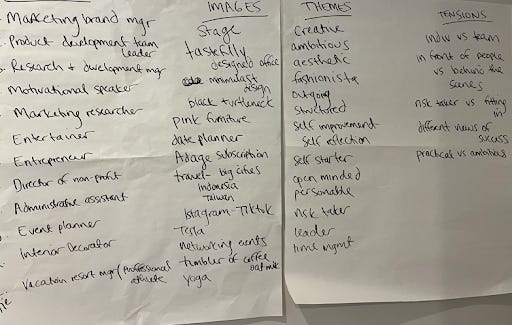 Marketing brand mgr
Product development team
leader
Research + development mgr
Motivational speaker
Marketing researcher
Entertainer
Entrepreneur
Director of non-profit
Administrative assistant
Event planner
Interior Decorator
Vacation resort mgr/professional
athlete
IMAGES
Stage
tastefully
designed office
minimalist
design
black turtleneck
pink furniture
date planner
Adage subscription
travel - big cities
Indonesia
Taiwan
Istagram-TikTok
Tesla
networking events
tumbler of coffee
oat milk
yoga
THEMES
Creative
ambitious
aesthetic
fashionista
outgoing
structured
self improvement
self reflection
self starter
open minded
personable
risk taker
leader
time mgmt
TENSIONS
indiv vs team
in front of people
vs behind the
scenes
risk taker vs fitting
in
different views of
success
practical vs ambitious